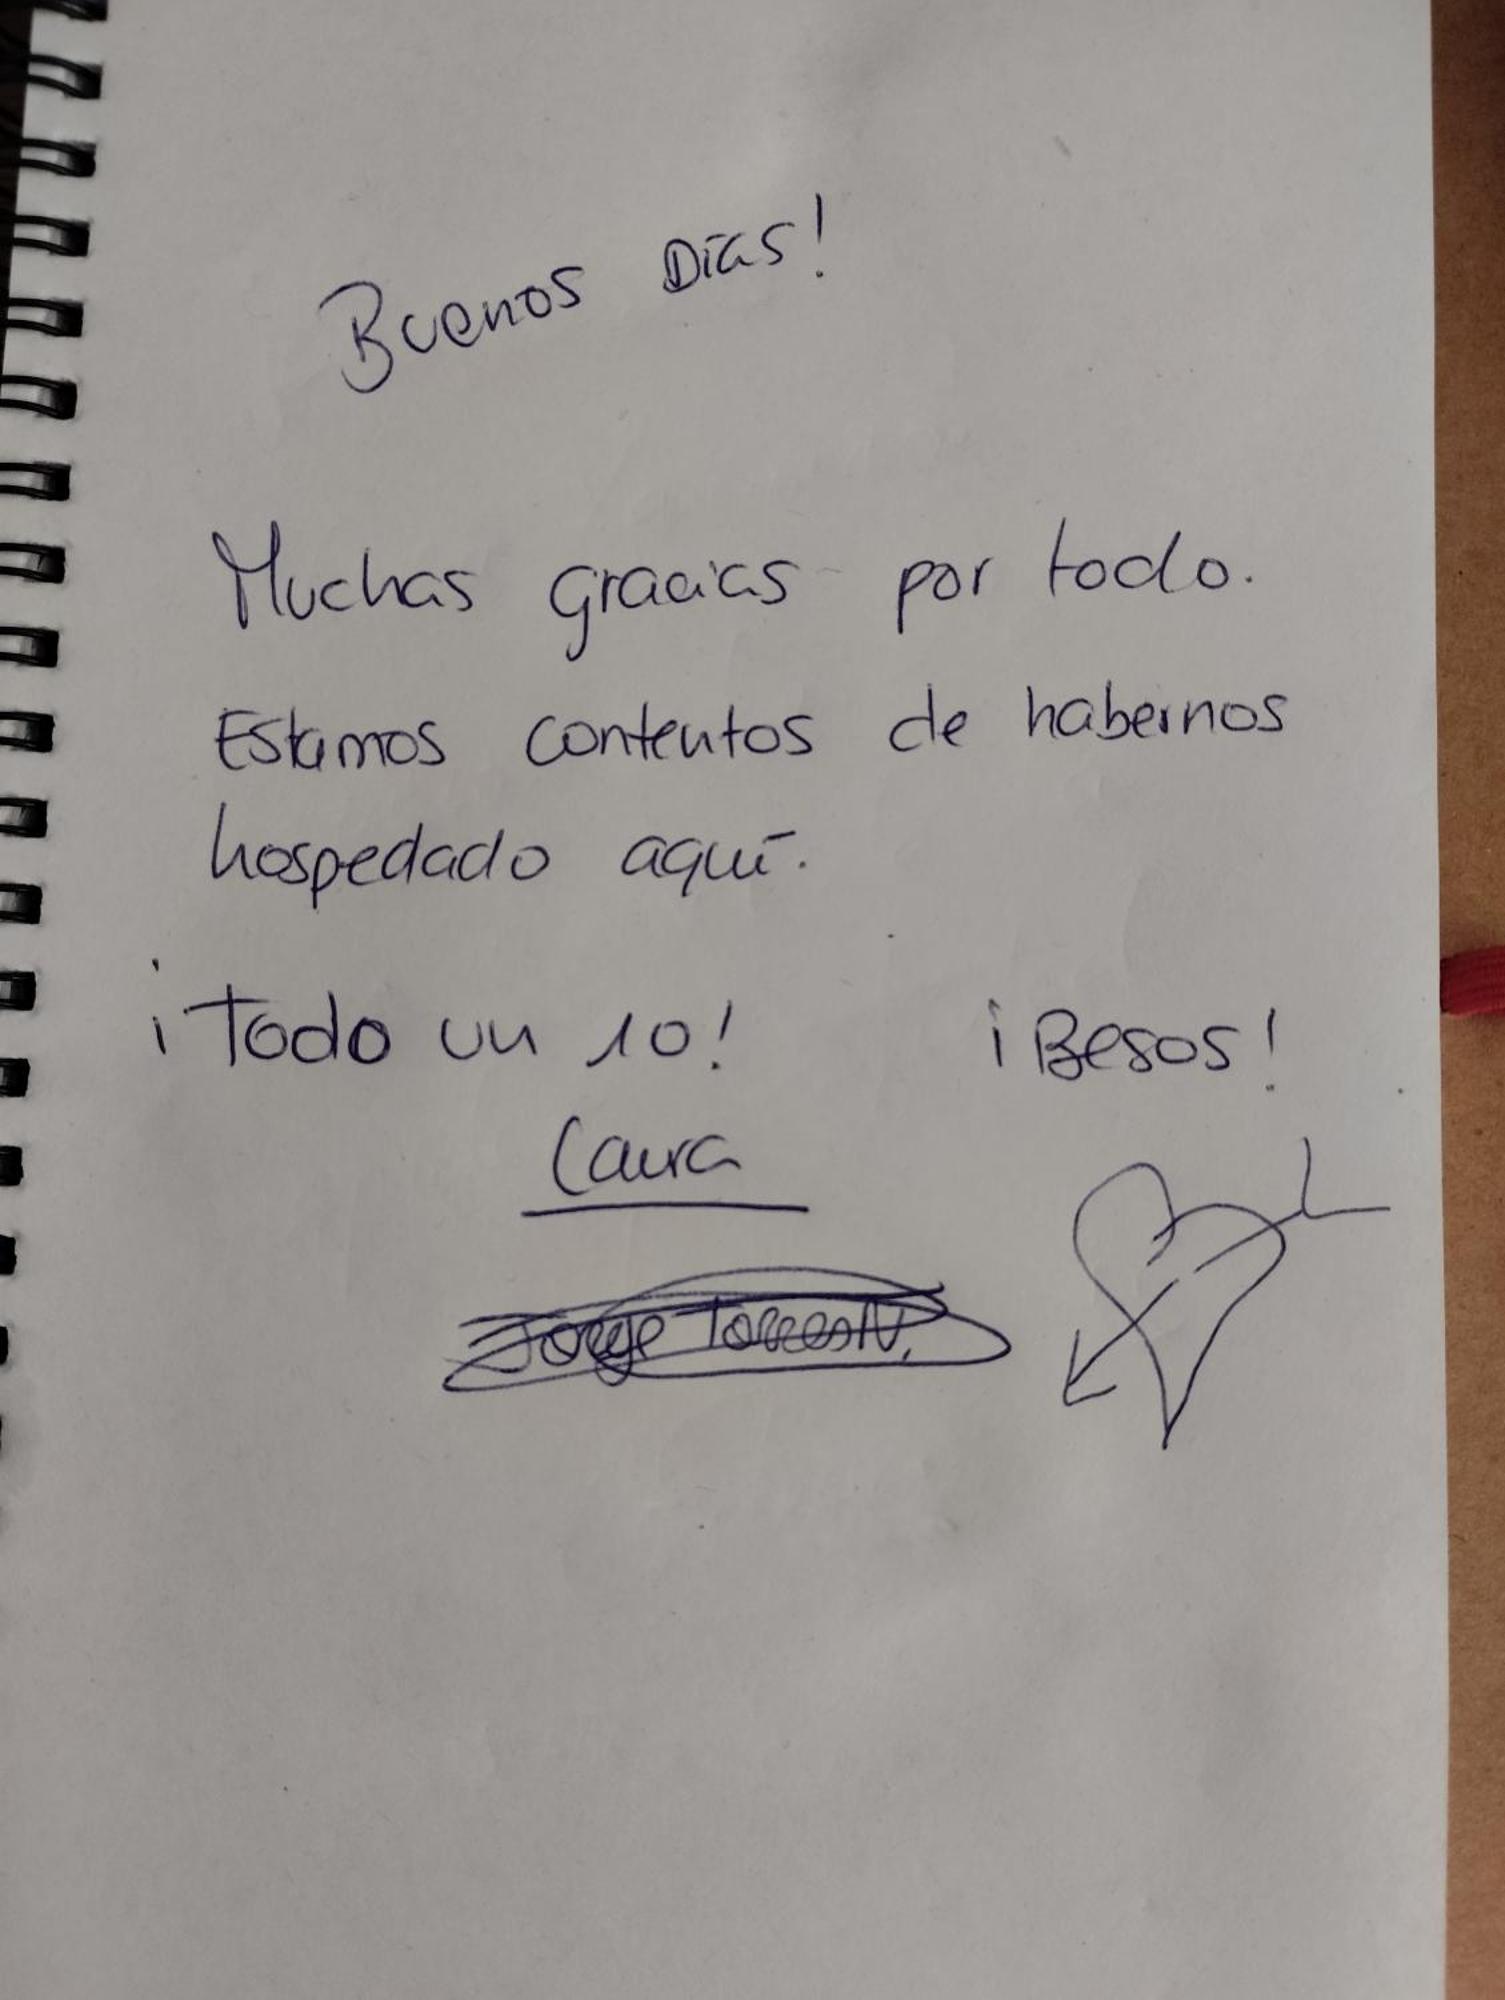 Buenos Días!
Muchas gracias por todo.
Estamos contentos de habernos
hospedado aquí.
¡Todo un 10! ¡Besos!
Laura
Jorge Torres N.